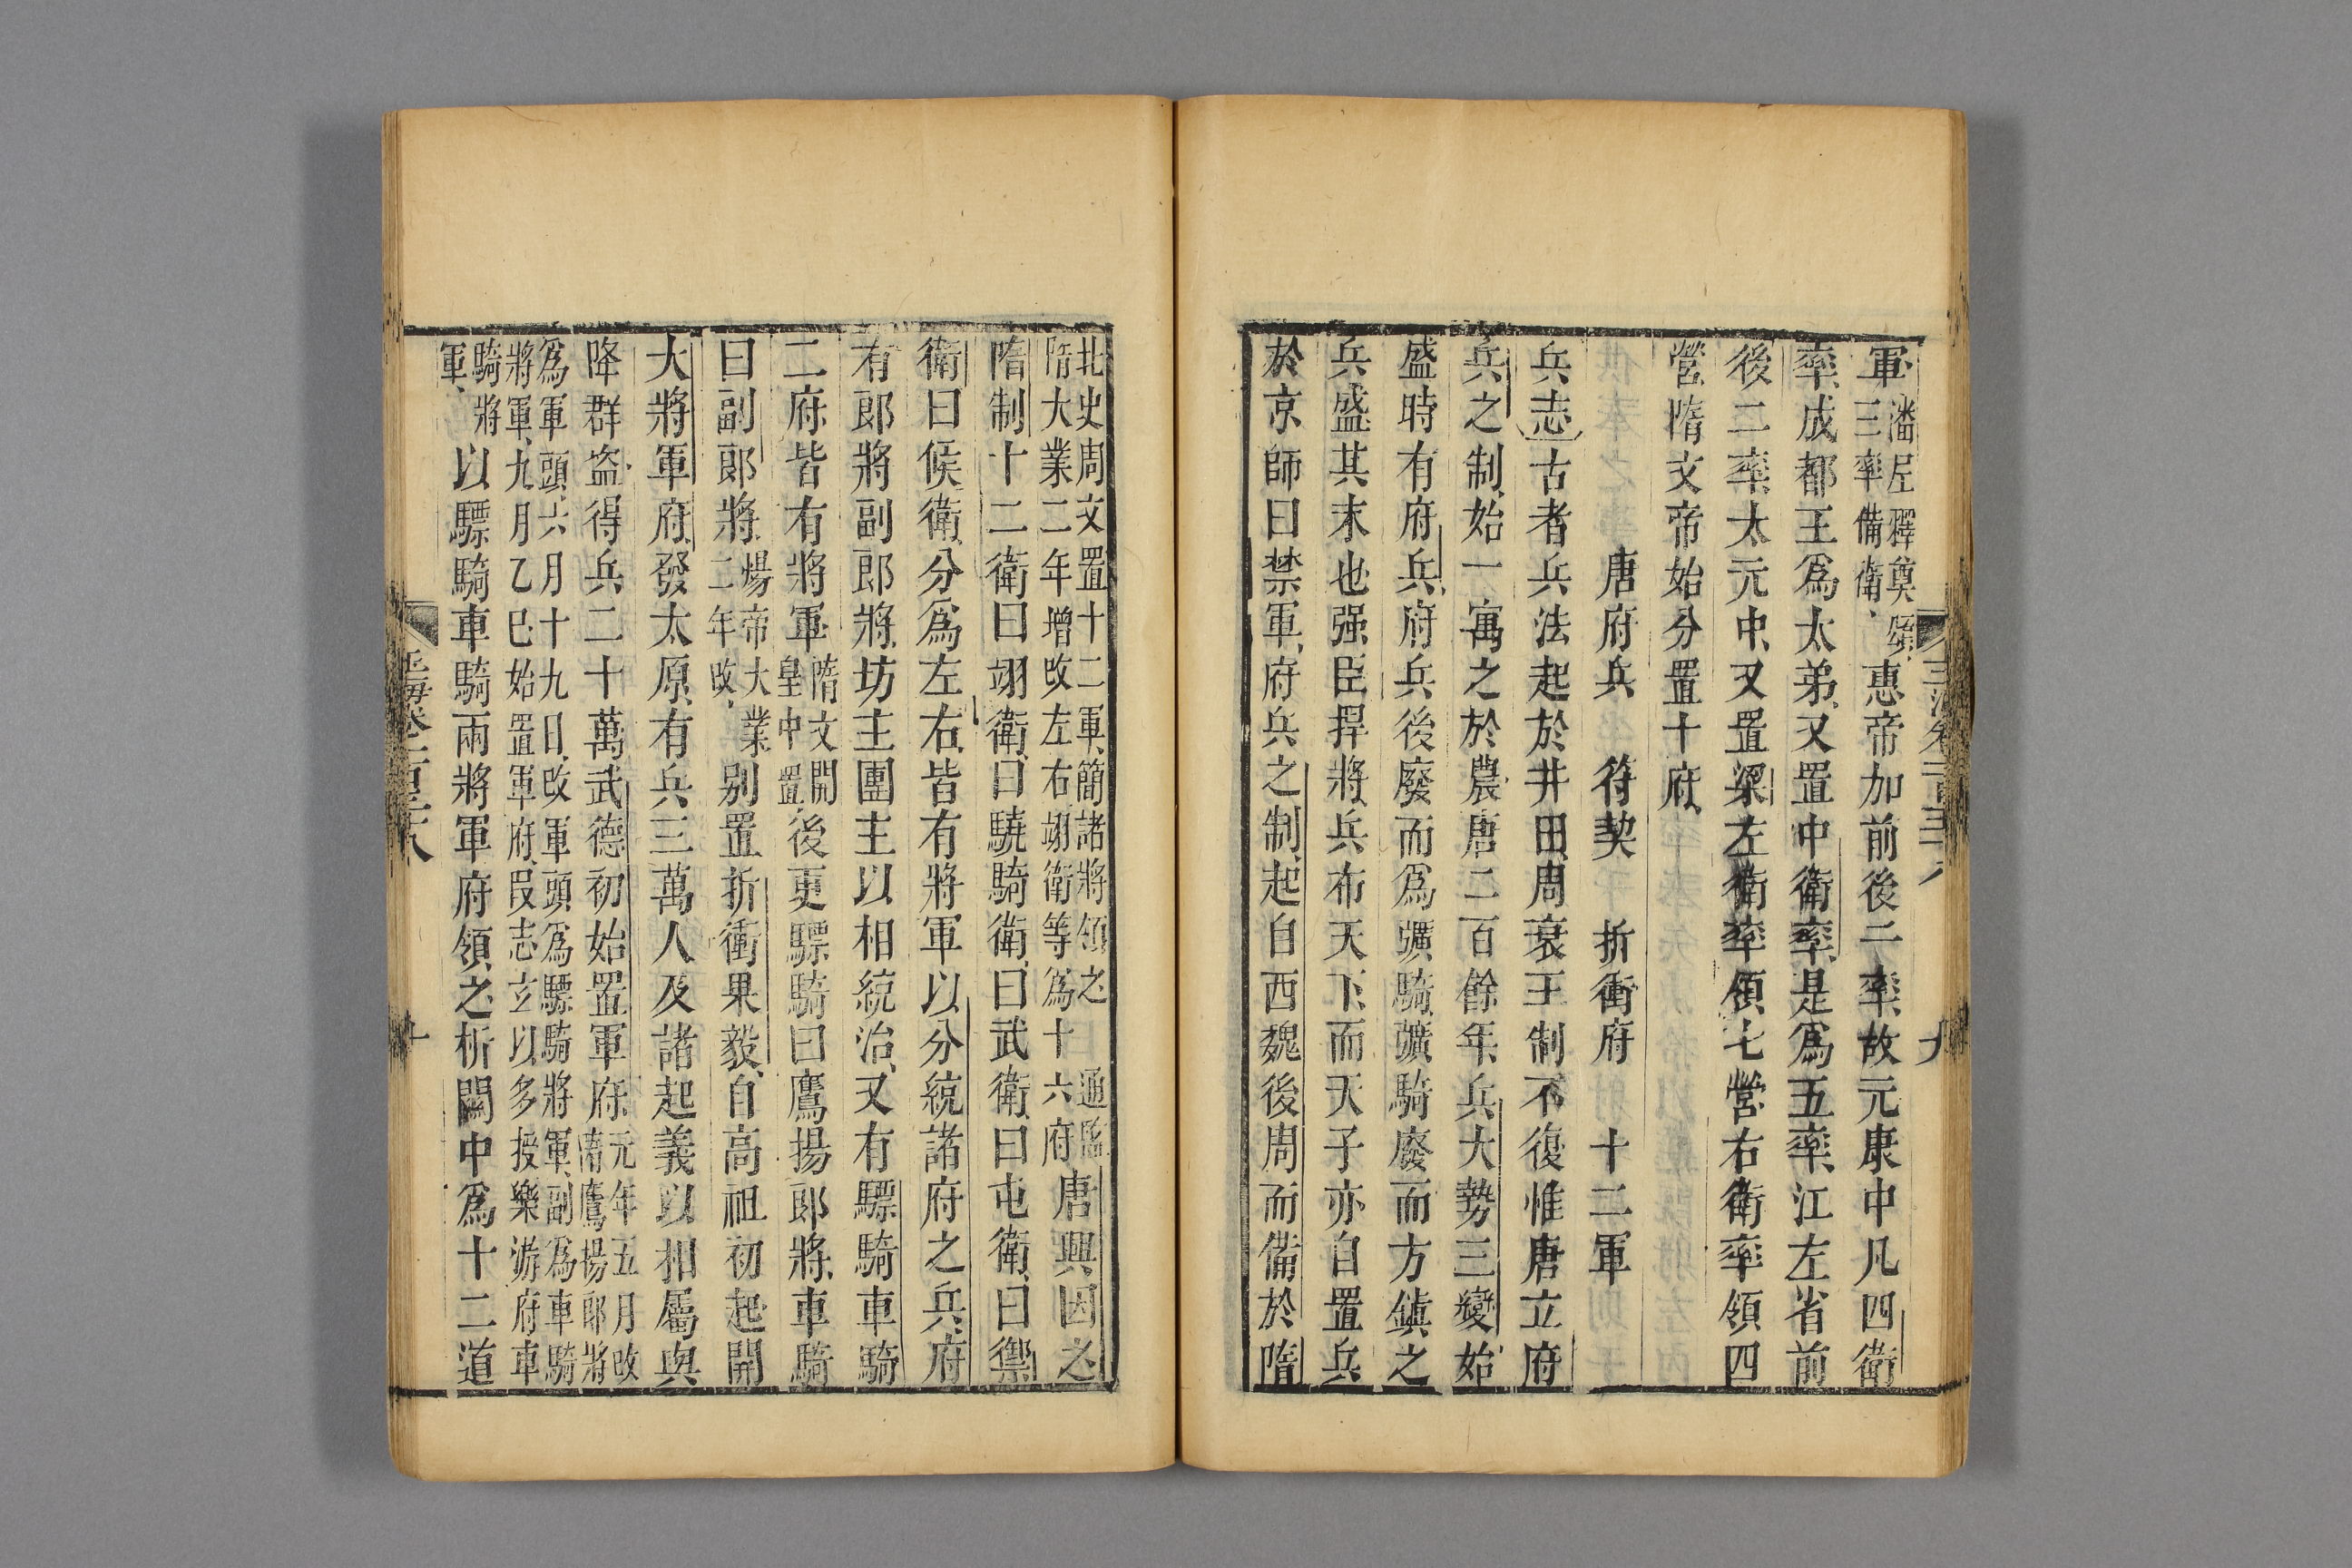 軍潘尼釋奠頌三率備衛惠帝加前後二率故元康中凡四衛
率成都王爲太弟又置中衛率是爲五率江左省前
後二率太元中又置梁左衛率領七營右衛率領四
營隋文帝始分置十府
唐府兵 符契 折衝府 十二軍
兵志古者兵法起於井田周衰王制不復惟唐立府
兵之制始一寓之於農唐二百餘年兵大勢三變始
盛時有府兵府兵後廢而爲彍騎彍騎廢而方鎮之
兵盛其末也强臣捍將兵布天下而天子亦自置兵
於京師曰禁軍府兵之制起自西魏後周而備於隋
北史周文置十二軍簡諸將領之 通鑑隋大業二年增改左右翊衛等爲十六府唐興因之
隋制十二衛曰翊衛曰驍騎衛曰武衛曰屯衛曰禦
衛曰候衛分爲左右皆有將軍以分統諸府之兵府
有郎將副郎將坊主團主以相統治又有驃騎車騎
二府皆有將軍隋文開皇中置後更驃騎曰鷹揚郎將車騎
曰副郎將煬帝大業二年改别置折衝果毅自高祖初起開
大將軍府發太原有兵三萬人及諸起義以相屬與
降群盗得兵二十萬武德初始置軍府元年五月改隋鷹揚郎將
爲軍頭六月十九日改軍頭爲驃騎將軍副爲車騎
將軍九月乙巳始置軍府叚志玄以多授樂游府車
騎將軍以驃騎車騎兩將軍府領之析關中爲十二道